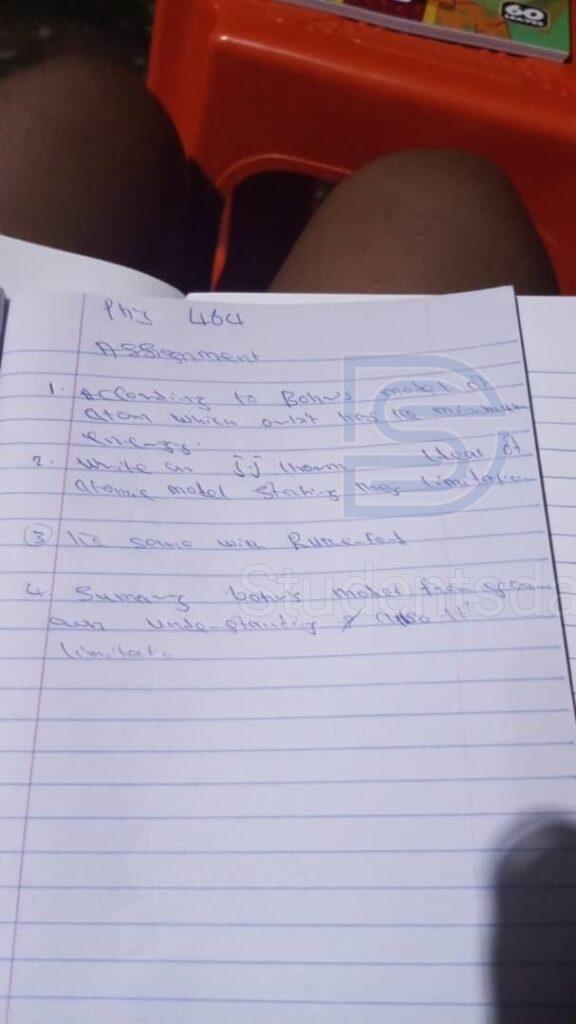 60
Phy 464
Assignment
1. According to Bohr's model of
atom which orbit has the minimum
energy.
2. write on J.J Thom Idear of
atomic model stating the limitation
3 the same with
4. Sumary bohr's model from your
own understanding & also it
limitatio
Studentsda